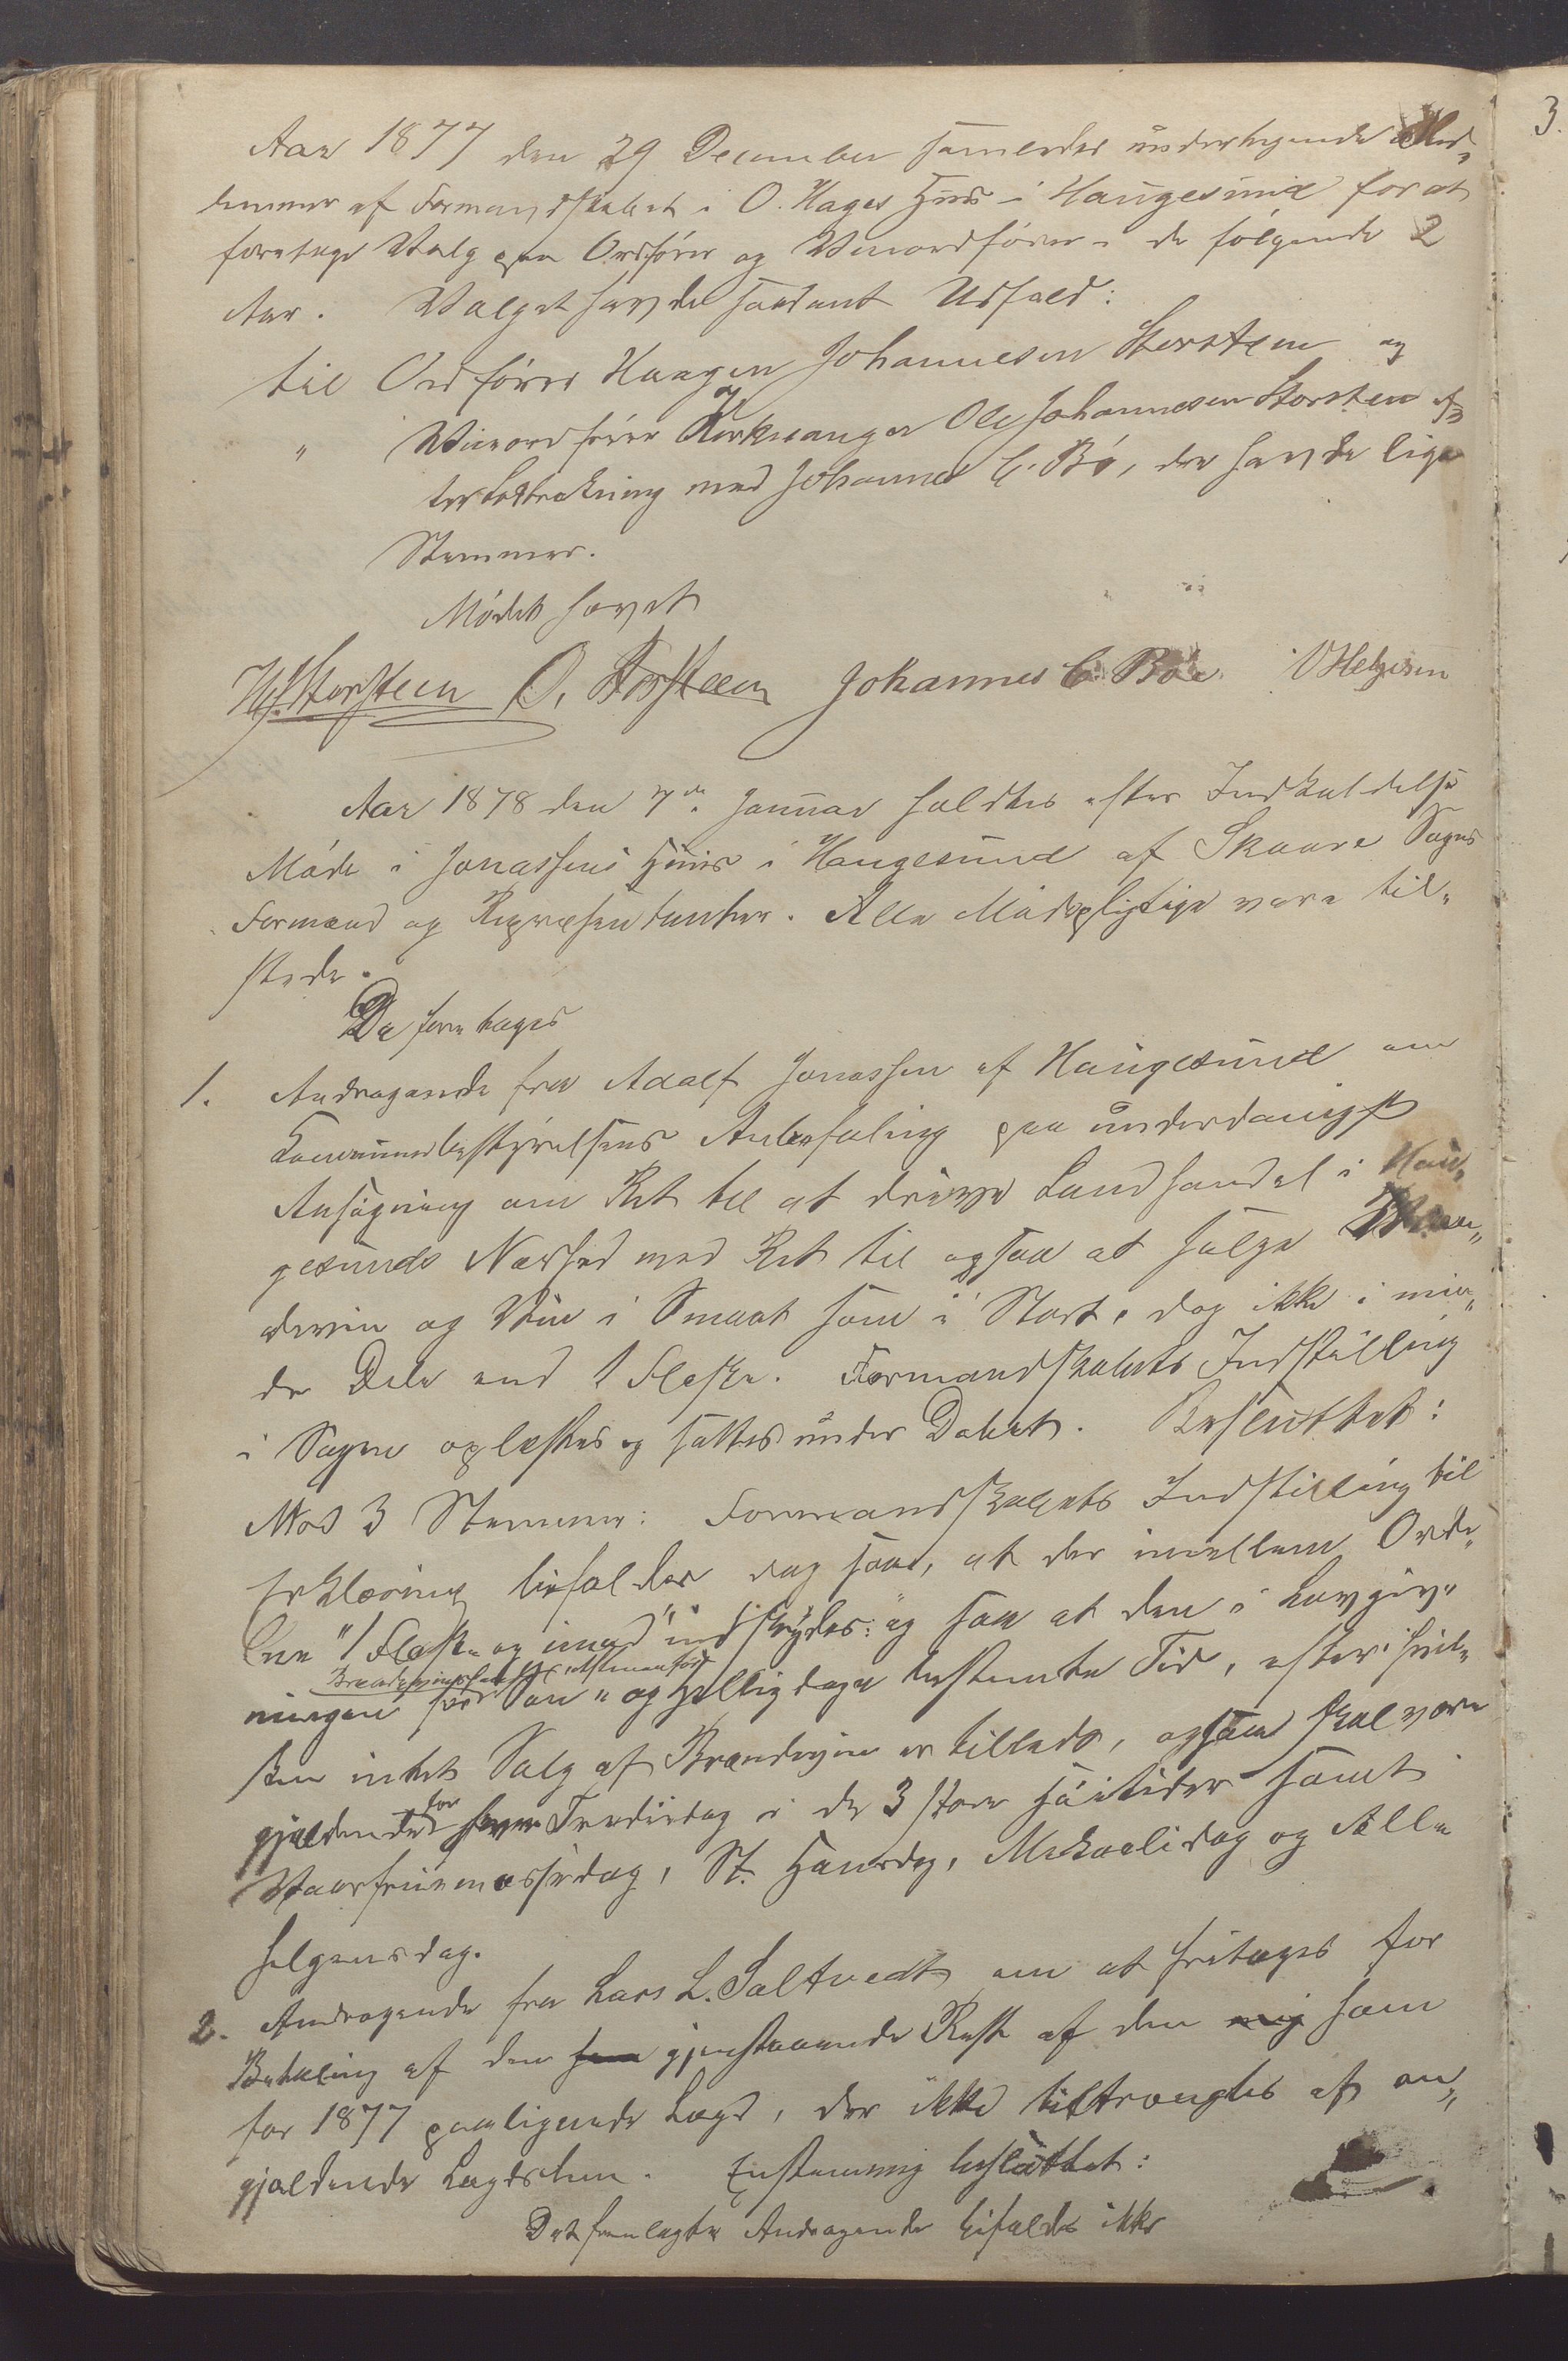 Aar 1877 den 29 December samledes undertegnede Med„
lemmer af Formandskabet i O. Hages Huus i Haugesund for at
foretage Valg paa Ordfører og Viceordfører i de følgende 2
Aar. Valget havde saadant Udfald:
til Ordfører Haagen Johannesen Storsteen og
" Viceordfører Kirkesanger Ole Johannesen Storsteen ef„
ter Lodtrækning med Johannes C. Bø, der havde lige
Stemmer.
Mødet hævet
H. J. Storsteen O. Storsteen Johannes C. Bøe V Helgesen
Aar 1878 den 7de Januar holdtes efter Indkaldelse
Møde i Jonassens Huus i Haugesund af Skaare Sogns
Formænd og Repræsentanter. Alle Mødepligtige vare til„
stede.
Da foretages
1. Andragende fra Adolf Jonassen af Haugesund om
Kommunebestyrelsens Anbefaling paa underdanigst
Ansøgning om Ret til at drive Landhandel i Hau„
gesunds Nærhed med Ret til ogsaa at sælge Bræn„
deviin og Viin i Smaat som i Stort, dog ikke i min„
dre Dele end 1 Flaske. Formandskabets Indstilling
i Sagen oplæstes og sattes under Debat. Besluttet:
Mod 3 Stemmer: Formandskabets Indstilling til
Erklæring bifaldes dog saa, at der imellem Orde„
ne "1 Flaske og imod" indskydes: "og saa at den i Lovgiv„
Brændeviinshandel
ningen for Søn„ og Helligdage bestemte Tid, efter hvil„
ken intet Salg af Brændeviin er tilladt, ogsaa skal være
gjældende for Tredjedag i de 3 store Høitider samt
Vaarfruemessedag, St. Hansdag, Mikaelidag og Alle
helgensdag.
2. Andragende fra Lars L. Saltvedt om at fritages for
Betaling af den gjenstaaende Rest af den ham
for 1877 paaligende Lægd, der ikke tiltrængtes af an„
gjældende Lægdslem. Enstemmig besluttet:
Det fremlagte Andragende bifaldes ikke